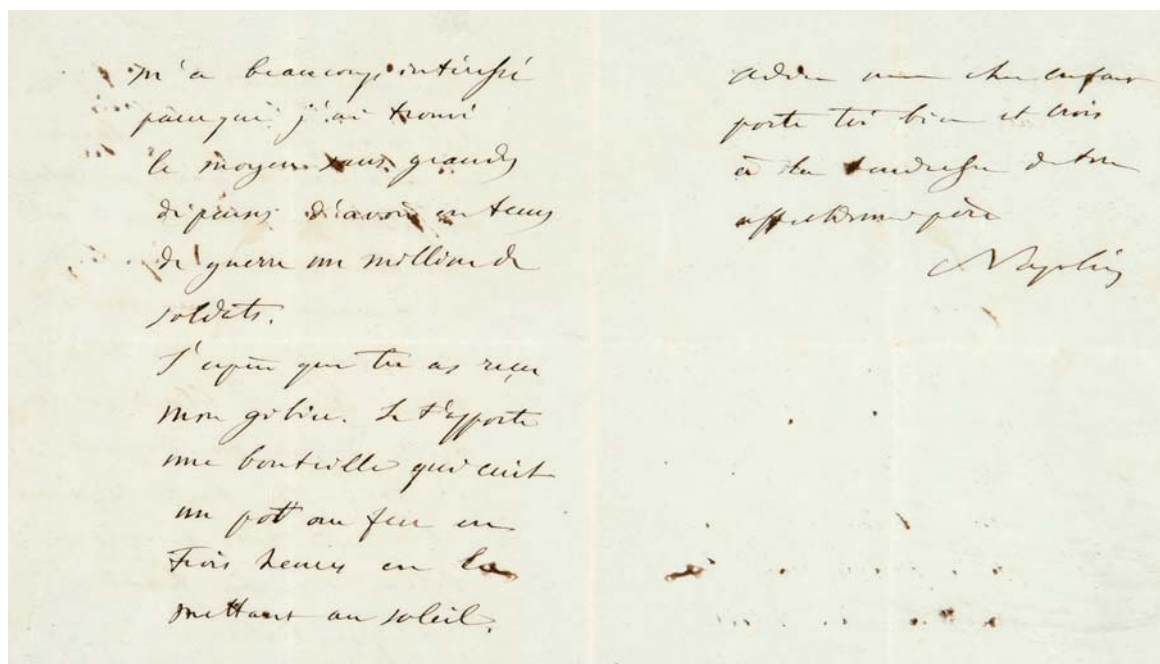 m'a beaucoup intéressé
parceque j'ai trouvé
le moyen sans grandes
dépenses d'avoir en temps
de guerre un million de
soldats.
J'espère que tu as reçu
mon gibier. Je t'apporte
une bouteille qui cuit
un pott au feu en
trois heures en la
mettant au soleil.
adieu mon cher enfant
porte toi bien et crois
à la tendresse de ton
affectionné père
Napoléon